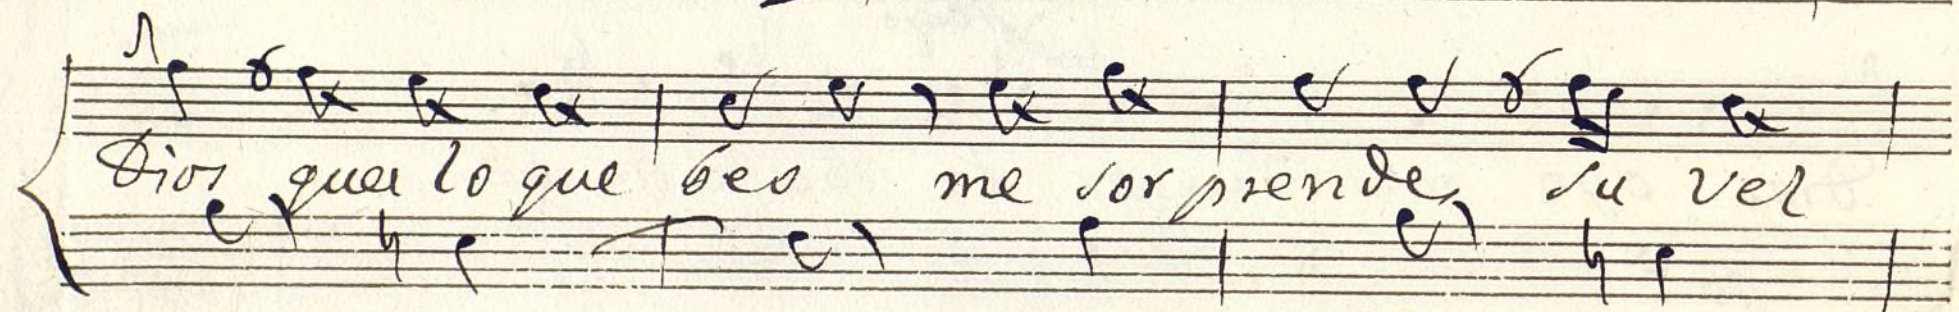 Dios que es lo que beo me sorprende, su vel